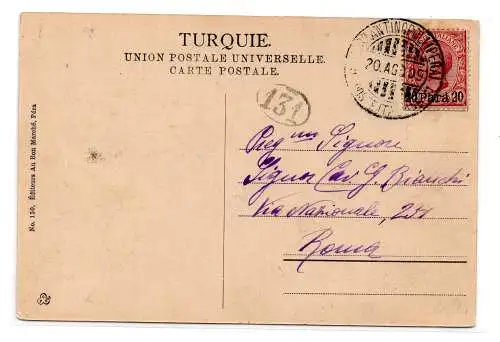 TURQUIE.
UNION POSTALE UNIVERSELLE.
CARTE POSTALE.
COSTANTINOPOLI (PERA)
20.AGO.09
Para 20
131
Preg mo Signore
Signor Cav. G. Bianchi
Via Nazionale, 251
Roma
No. 150, Éditeurs Au Bon Marché, Péra